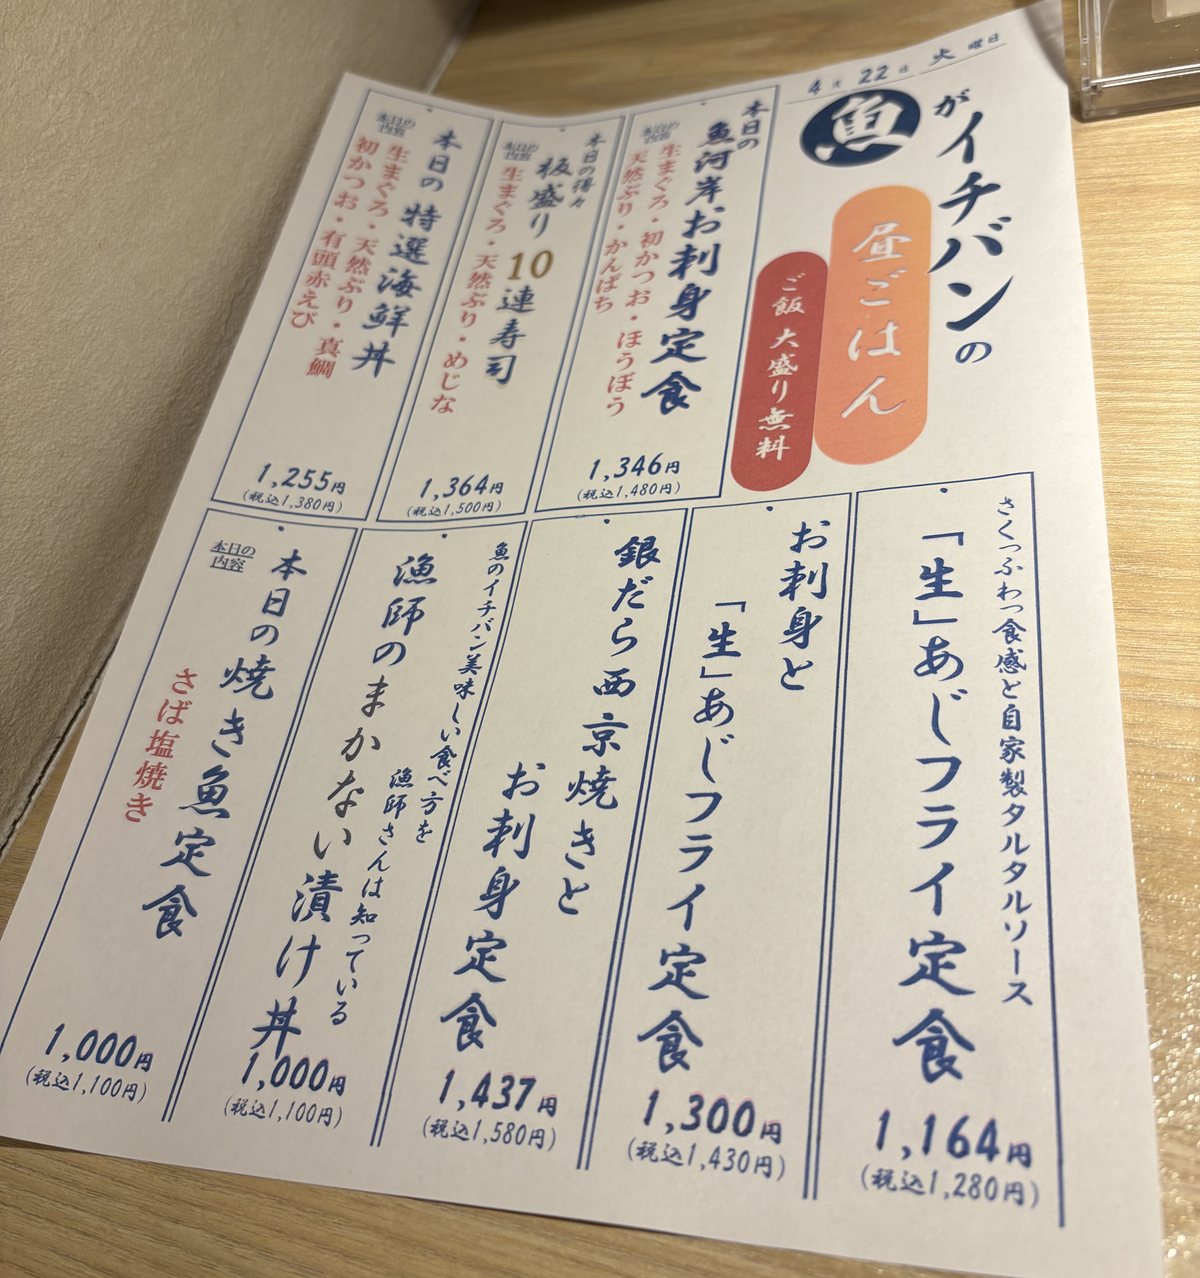 4月22日 火曜日
魚がイチバンの
昼ごはん
ご飯 大盛り無料
本日の
魚河岸お刺身定食
本日の内容
生まぐろ・初かつお・ほうぼう
天然ぶり・かんぱち
1,346円
(税込1,480円)
本日の得々
板盛り10連寿司
本日の内容
生まぐろ・天然ぶり・めじな
1,364円
(税込1,500円)
本日の特選海鮮丼
本日の内容
生まぐろ・天然ぶり・真鯛
初かつお・有頭赤えび
1,255円
(税込1,380円)
さくっふわっ食感と自家製タルタルソース
「生」あじフライ定食
1,164円
(税込1,280円)
お刺身と
「生」あじフライ定食
1,300円
(税込1,430円)
銀だら西京焼きと
お刺身定食
1,437円
(税込1,580円)
魚のイチバン美味しい食べ方を
漁師さんは知っている
漁師のまかない漬け丼
1,000円
(税込1,100円)
本日の焼き魚定食
本日の内容
さば塩焼き
1,000円
(税込1,100円)